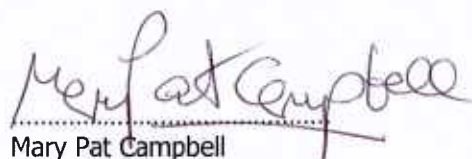 Mary Pat Campbell
Mary Pat Campbell